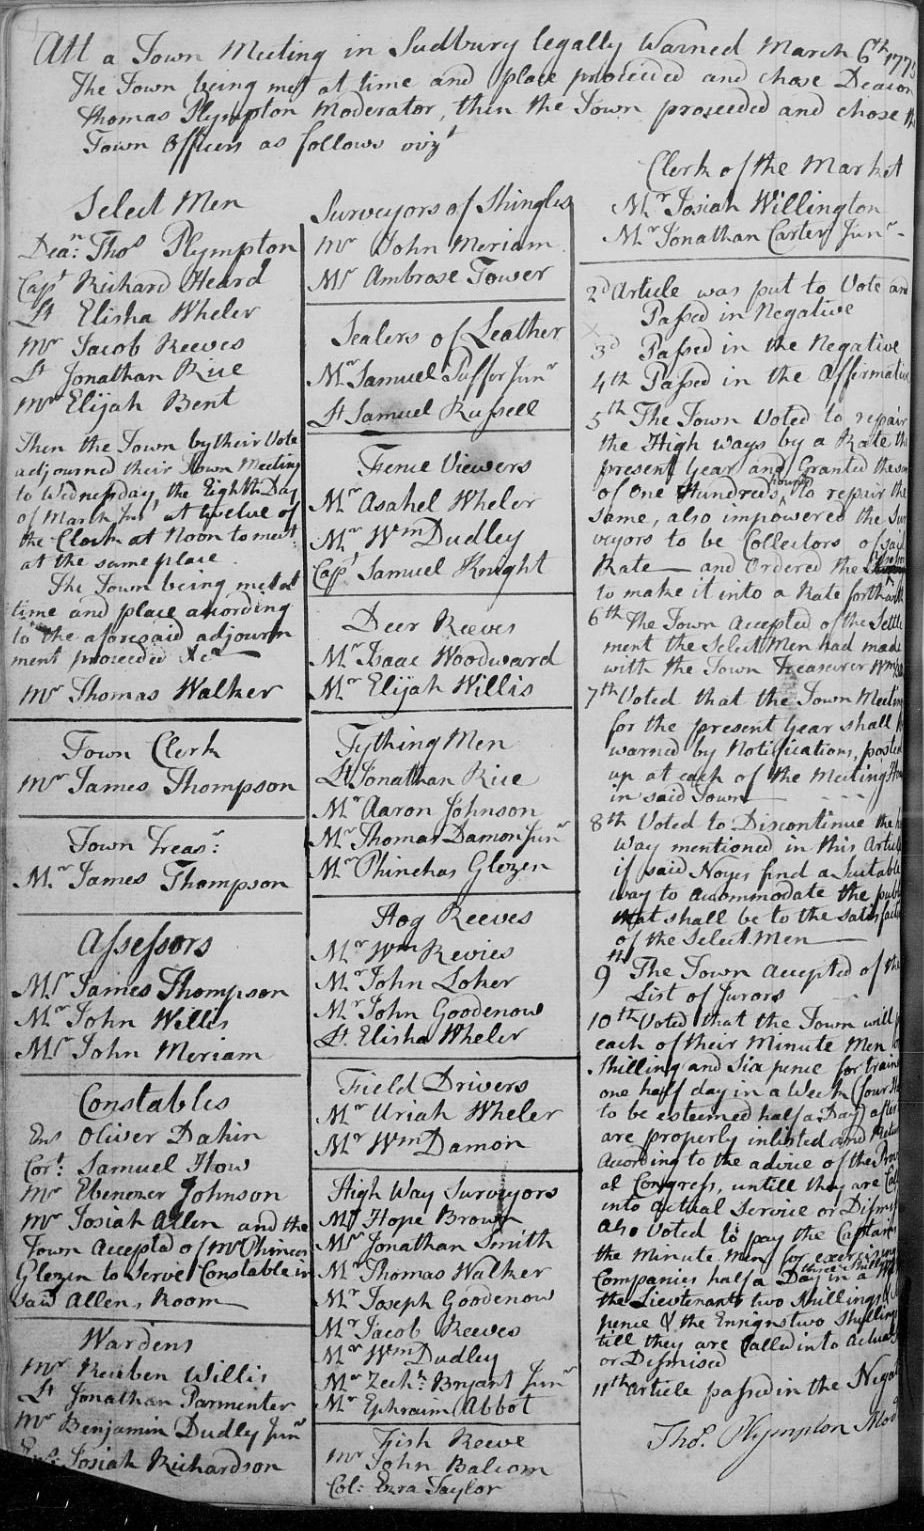 Att a Town Meeting in Sudbury legally Warned March 6th 1775
The Town being met at time and place proceeded and chose Deacon
Thomas Plympton Moderator, then the Town proceeded and chose
Town Officers as follows vizt
Select Men
Dean: Thos Plympton
Capt Richard Heard
Lt Elisha Wheler
Mr Jacob Reeves
Lt Jonathan Rice
Mr Elijah Bent
Then the Town by their Vote
adjourned their Town Meeting
to Wednesday, the Eighth Day
of March Inst at twelve of
the Clock at Noon to meet
at the same place
The Town being met at
time and place acording
to the aforesaid adjourn
ment proceeded &c
Mr Thomas Walker
Town Clerk
Mr James Thompson
Town Treasr:
Mr James Thompson
Assessors
Mr James Thompson
Mr John Willis
Mr John Meriam
Constables
Ens Oliver Dakin
Cort: Samuel How
Mr Ebenezer Johnson
Mr Josiah Allen and the
Town accepted of Mr Phinehas
Glezen to Serve Constable in
said Allens, Room
Wardens
Mr Reuben Willis
Lt Jonathan Parmenter
Mr Benjamin Dudley Junr
Josiah Richardson
Surveyors of Shingles
Mr John Meriam
Mr Ambrose Tower
Sealers of Leather
Mr Samuel Puffer Junr
Lt Samuel Russell
Fence Viewers
Mr Asahel Wheler
Mr Wm Dudley
Capt Samuel Knight
Deer Reeves
Mr Isaac Woodward
Mr Elijah Willis
Tything Men
Lt Jonathan Rice
Mr Aaron Johnson
Mr Thomas Damon Junr
Mr Phinehas Glezen
Hog Reeves
Mr Wm Revies
Mr John Loker
Mr John Goodenow
Lt. Elisha Wheler
Field Drivers
Mr Uriah Wheler
Mr Wm Damon
High Way Surveyors
Mr Hope Brown
Mr Jonathan Smith
Mr Thomas Walker
Mr Joseph Goodenow
Mr Jacob Reeves
Mr Wm Dudley
Mr Zech: Bryant Junr
Mr Ephraim Abbot
Fish Reeve
Mr John Balcom
Col: Ezra Taylor
Clerk of the Market
Mr Josiah Willington
Mr Jonathan Carter Junr
2d Article was put to Vote and
Passed in Negative
3d Passed in the Negative
4th Passed in the Affirmative
5th The Town Voted to repair
the High ways by a Rate
present year and Granted the sum
of One Hundred pounds to repair the
same, also impowered the Sur
veyors to be Collectors of said
Rate and Ordered the
to make it into a Rate forthwith
6th The Town accepted of the Settle
ment the Select Men had made
with the Town Treasurer
7th Voted that the Town Meeting
for the present year shall
warned by Notifications, posted
up at each of the Meeting
in said Town
8th Voted to Discontinue the
way mentioned in this Article
if said Noyes find a Suitable
way to accommodate the
that shall be to the satisfaction
of the Select Men
9th The Town accepted of the
List of Jurors
10th Voted that the Town will
each of their Minute Men
Shilling and Six pence for
one half day in a Week (four
to be esteemed half a Day) after
are properly inlisted and
According to the advice of the
al Congress, untill they are
into actual Service or
also Voted to pay the Captains
the Minute Men for exercising
Companies half a Day in a three shillings
the Lieutenants two Shillings
pence & the Ensigns two Shillings
till they are Called into Actual
or Dismised
11th Article passed in the
Thos. Plympton